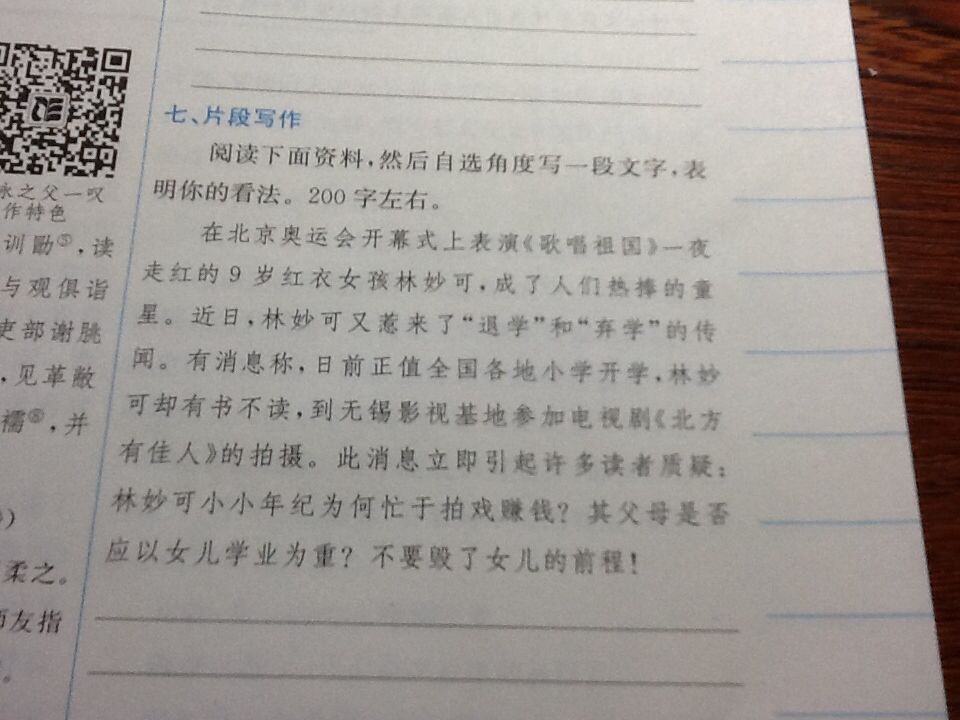 永之父一叹
作特色
训勖⑤,读
与观俱诣
吏部谢朓
,见革敝
襦⑥,并
)
柔之。
师友指
。
七、片段写作
阅读下面资料,然后自选角度写一段文字,表
明你的看法。200字左右。
在北京奥运会开幕式上表演《歌唱祖国》一夜
走红的9岁红衣女孩林妙可,成了人们热捧的童
星。近日,林妙可又惹来了“退学”和“弃学”的传
闻。有消息称,日前正值全国各地小学开学,林妙
可却有书不读,到无锡影视基地参加电视剧《北方
有佳人》的拍摄。此消息立即引起许多读者质疑:
林妙可小小年纪为何忙于拍戏赚钱?其父母是否
应以女儿学业为重?不要毁了女儿的前程!